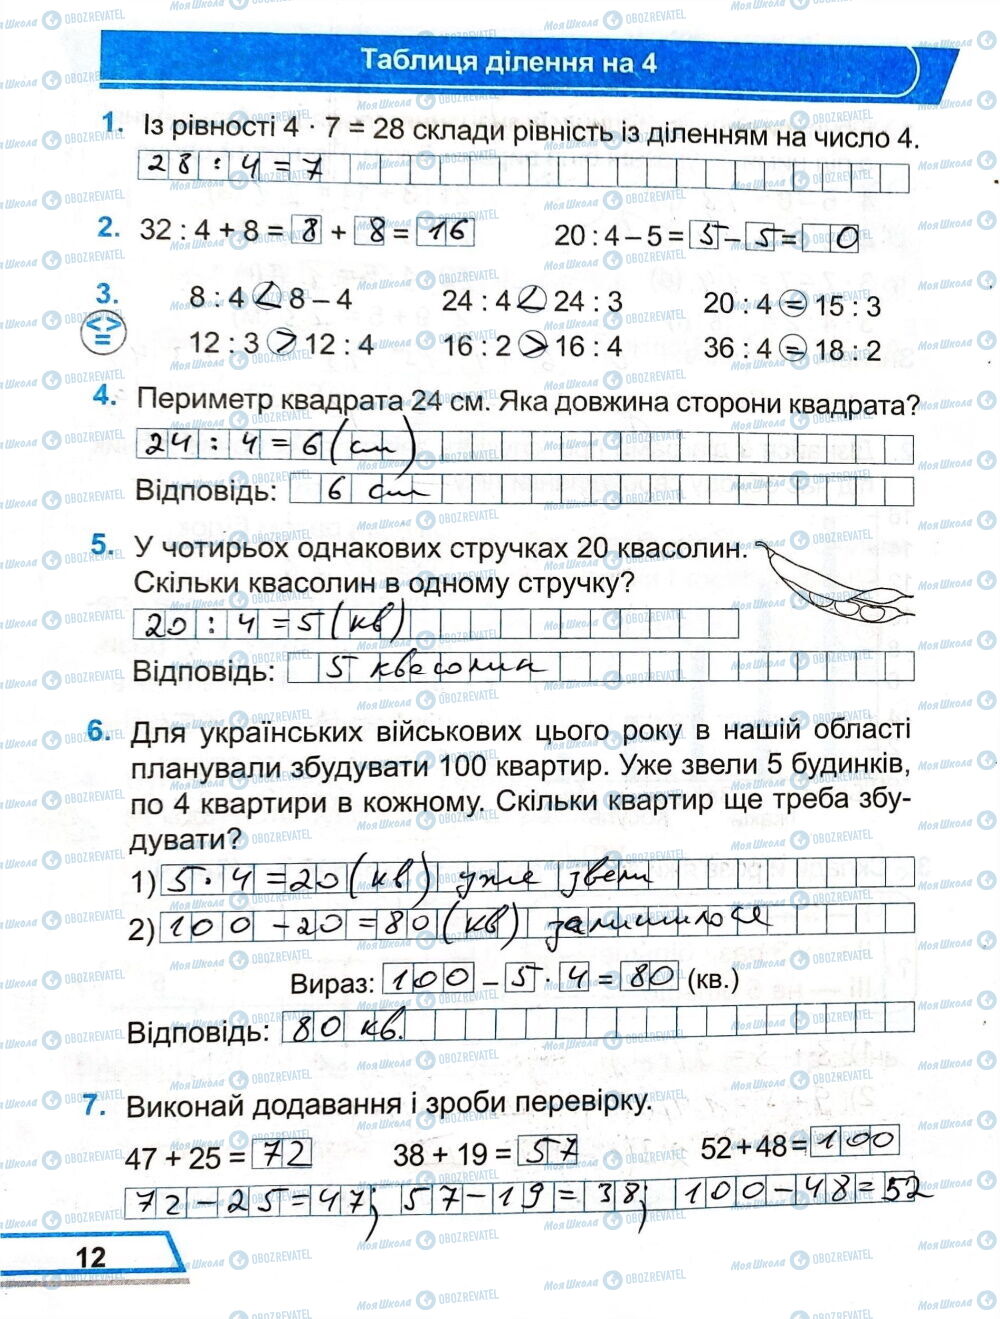 Таблиця ділення на 4
1. Із рівності 4 · 7 = 28 склади рівність із діленням на число 4.
28 : 4 = 7
2. 32 : 4 + 8 = 8 + 8 = 16 20 : 4 – 5 = 5 – 5 = 0
3. 8 : 4 < 8 – 4 24 : 4 < 24 : 3 20 : 4 = 15 : 3
<>
=
12 : 3 > 12 : 4 16 : 2 > 16 : 4 36 : 4 = 18 : 2
4. Периметр квадрата 24 см. Яка довжина сторони квадрата?
24 : 4 = 6 (см)
Відповідь: 6 см
5. У чотирьох однакових стручках 20 квасолин.
Скільки квасолин в одному стручку?
20 : 4 = 5 (кв)
Відповідь: 5 квасолин
6. Для українських військових цього року в нашій області
планували збудувати 100 квартир. Уже звели 5 будинків,
по 4 квартири в кожному. Скільки квартир ще треба збу-
дувати?
1) 5 · 4 = 20 (кв) уже звели
2) 100 – 20 = 80 (кв) залишилося
Вираз: 100 – 5 · 4 = 80 (кв.)
Відповідь: 80 кв.
7. Виконай додавання і зроби перевірку.
47 + 25 = 72 38 + 19 = 57 52 + 48 = 100
72 – 25 = 47; 57 – 19 = 38; 100 – 48 = 52
12
МояШкола OBOZREVATEL